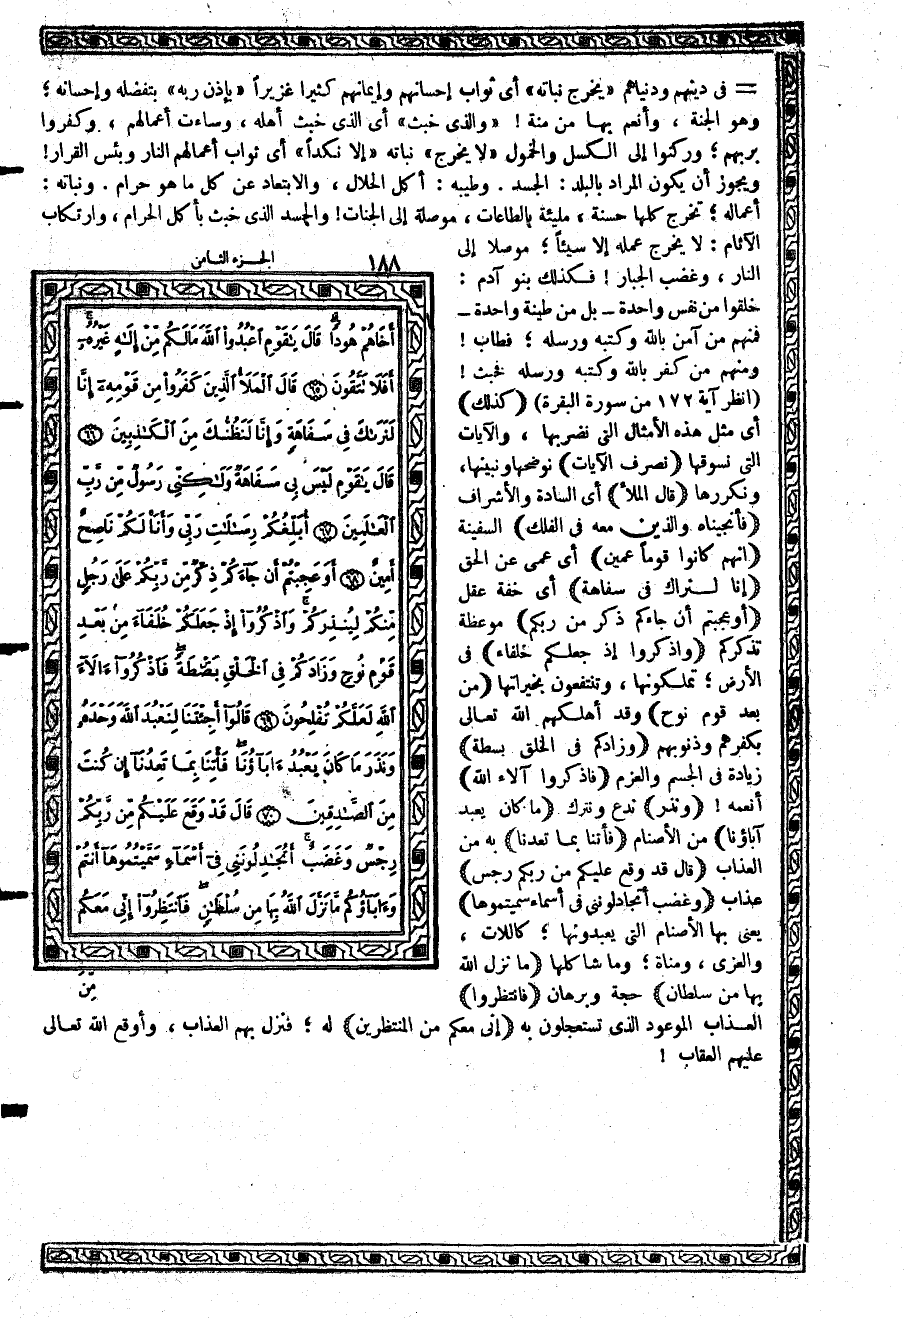 = فى دينهم ودنياهم «يخرج نباته» أى ثواب إحسانهم وإيمانهم كثيرا غزيراً «بإذن ربه» بتفضله وإحسانه ؛
وهو الجنة ، وأنعم بهـا من منة ! «والذى خبث» أى الذى خبث أهله ، وساءت أعمالهم ، وكفروا
بربهم ؛ وركنوا إلى الكسل والخمول «لا يخرج» نباته «إلا نكداً» أى ثواب أعمالهم النار وبئس القرار!
ويجوز أن يكون المراد بالبلد : الجسد . وطيبه : أكل الحلال ، والابتعاد عن كل ما هو حرام . ونباته :
أعماله ؛ تخرج كلها حسنة ، مليئة بالطاعات ، موصلة إلى الجنات! والجسد الذى خبث بأكل الحرام ، وارتكاب
الآثام : لا يخرج عمله إلا سيئاً ؛ موصلا إلى
النار ، وغضب الجبار ! فـكذلك بنو آدم :
خلقوا من نفس واحدة ــ بل من طينة واحدة ــ
فمنهم من آمن بالله وكتبه ورسله ؛ فطاب !
ومنهم من كفر بالله وكتبه ورسله فخبث !
(انظر آية ١٧٢ من سورة البقرة) (كذلك)
أى مثل هذه الأمثال التى نضربها ، والآيات
التى نسوقها (نصرف الآيات) نوضحها ونبينها،
ونكررها (قال الملأ) أى السادة والأشراف
(فأنجيناه والذين معه فى الفلك) السفينة
(إنهم كانوا قوماً عمين) أى عمى عن الحق
(إنا لـنراك فى سفاهة) أى خفة عقل
(أوعجبتم أن جاءكم ذكر من ربكم) موعظة
تذكركم (واذكروا إذ جعلـكم خلفاء) فى
الأرض ؛ تملـكونها ، وتنتفعون بخيراتها (من
بعد قوم نوح) وقد أهلـكهم الله تعالى
بكفرهم وذنوبهم (وزادكم فى الخلق بسطة)
زيادة فى الجسم والعزم (فاذكروا آلاء الله)
أنعمه ! (ونذر) ندع ونترك (ما كان يعبد
آباؤنا) من الأصنام (فأتنا بمـا تعدنا) به من
العذاب (قال قد وقع عليكم من ربكم رجس)
عذاب (وغضب أتجادلوننى فى أسماء سميتموها)
يعنى بها الأصنام التى يعبدونها ؛ كاللات ،
والعزى ، ومناة ؛ وما شاكلها (ما نزل الله
بها من سلطان) حجة وبرهان (فانتظروا)
العـذاب الموعود الذى تستعجلون به (إنى معكم من المنتظرين) له ؛ فنزل بهم العذاب ، وأوقع الله تعـالى
عليهم العقاب !
١٨٨ الجـزء الثـامن
أَخَاهُمْ هُودًا قَالَ يَٰقَوْمِ ٱعْبُدُوا۟ ٱللَّهَ مَا لَكُم مِّنْ إِلَٰهٍ غَيْرُهُۥٓ
أَفَلَا تَتَّقُونَ ۝٦٥ قَالَ ٱلْمَلَأُ ٱلَّذِينَ كَفَرُوا۟ مِن قَوْمِهِۦٓ إِنَّا
لَنَرَىٰكَ فِى سَفَاهَةٍ وَإِنَّا لَنَظُنُّكَ مِنَ ٱلْكَٰذِبِينَ ۝٦٦
قَالَ يَٰقَوْمِ لَيْسَ بِى سَفَاهَةٌ وَلَٰكِنِّى رَسُولٌ مِّن رَّبِّ
ٱلْعَٰلَمِينَ ۝٦٧ أُبَلِّغُكُمْ رِسَٰلَٰتِ رَبِّى وَأَنَا۠ لَكُمْ نَاصِحٌ
أَمِينٌ ۝٦٨ أَوَعَجِبْتُمْ أَن جَآءَكُمْ ذِكْرٌ مِّن رَّبِّكُمْ عَلَىٰ رَجُلٍ
مِّنكُمْ لِيُنذِرَكُمْ ۚ وَٱذْكُرُوٓا۟ إِذْ جَعَلَكُمْ خُلَفَآءَ مِنۢ بَعْدِ
قَوْمِ نُوحٍ وَزَادَكُمْ فِى ٱلْخَلْقِ بَصْۜطَةً ۖ فَٱذْكُرُوٓا۟ ءَالَآءَ
ٱللَّهِ لَعَلَّكُمْ تُفْلِحُونَ ۝٦٩ قَالُوٓا۟ أَجِئْتَنَا لِنَعْبُدَ ٱللَّهَ وَحْدَهُۥ
وَنَذَرَ مَا كَانَ يَعْبُدُ ءَابَآؤُنَا ۖ فَأْتِنَا بِمَا تَعِدُنَآ إِن كُنتَ
مِنَ ٱلصَّٰدِقِينَ ۝٧٠ قَالَ قَدْ وَقَعَ عَلَيْكُم مِّن رَّبِّكُمْ
رِجْسٌ وَغَضَبٌ ۖ أَتُجَٰدِلُونَنِى فِىٓ أَسْمَآءٍ سَمَّيْتُمُوهَآ أَنتُمْ
وَءَابَآؤُكُم مَّا نَزَّلَ ٱللَّهُ بِهَا مِن سُلْطَٰنٍ ۚ فَٱنتَظِرُوٓا۟ إِنِّى مَعَكُم
مِّنَ